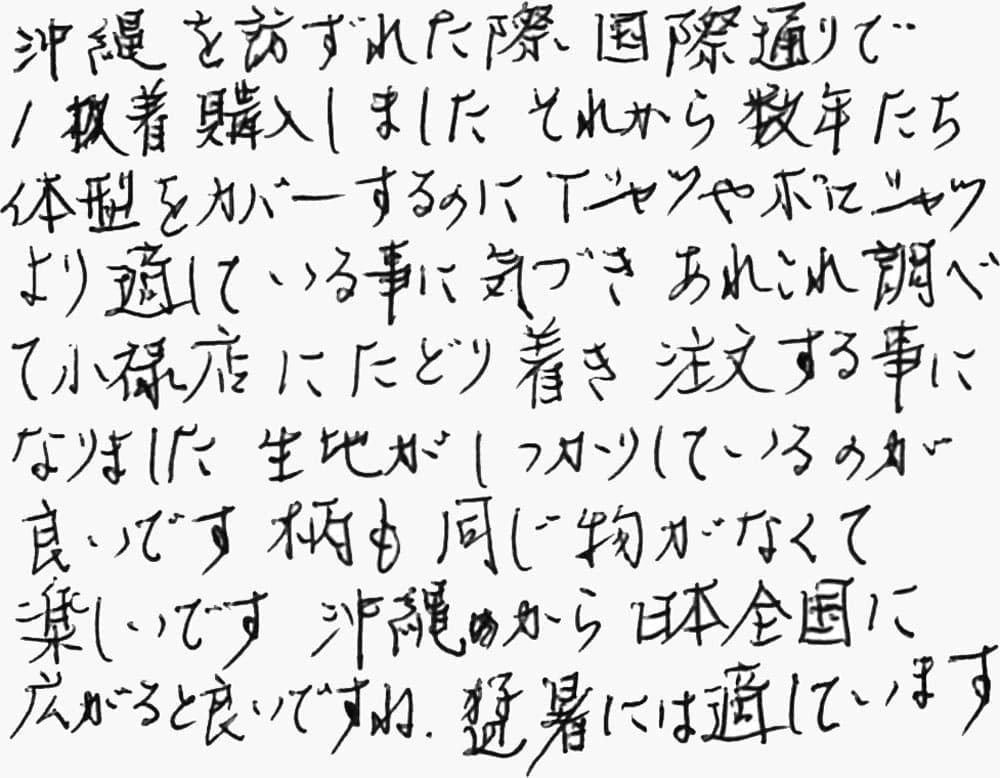 沖縄を訪ずれた際、国際通りで
1枚着購入しました それから数年たち
体型をカバーするのにTシャツやポロシャツ
より適している事に気づき あれこれ調べ
て小禄店にたどり着き 注文する事に
なりました 生地がしっかりしているのが
良いです 柄も同じ物がなくて
楽しいです 沖縄から日本全国に
広がると良いですね. 猛暑には適しています